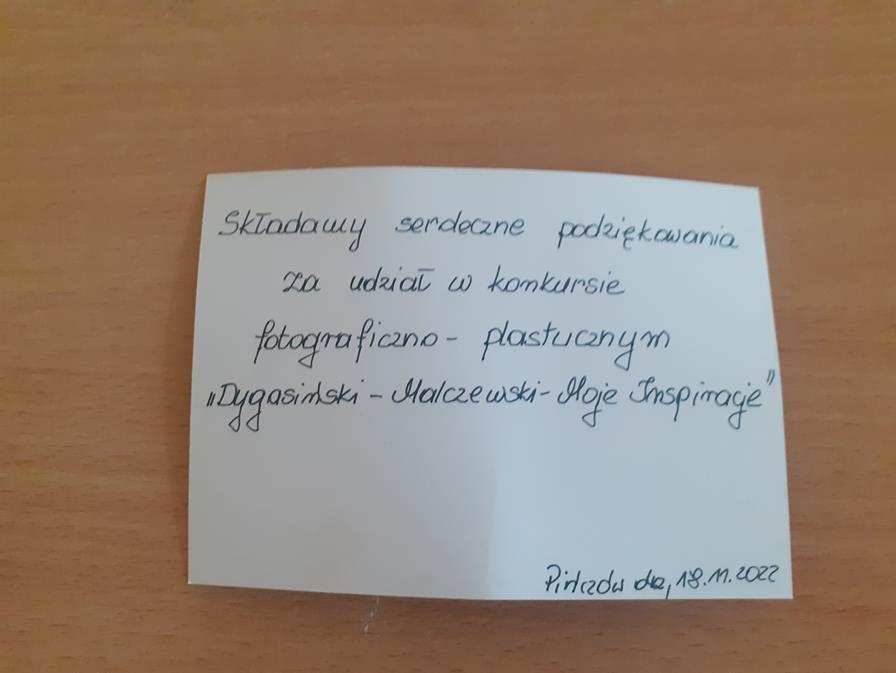 Składamy serdeczne podziękowania
za udział w konkursie
fotograficzno - plastycznym
„Dygasiński - Malczewski - Moje Inspiracje”
18.11.2022